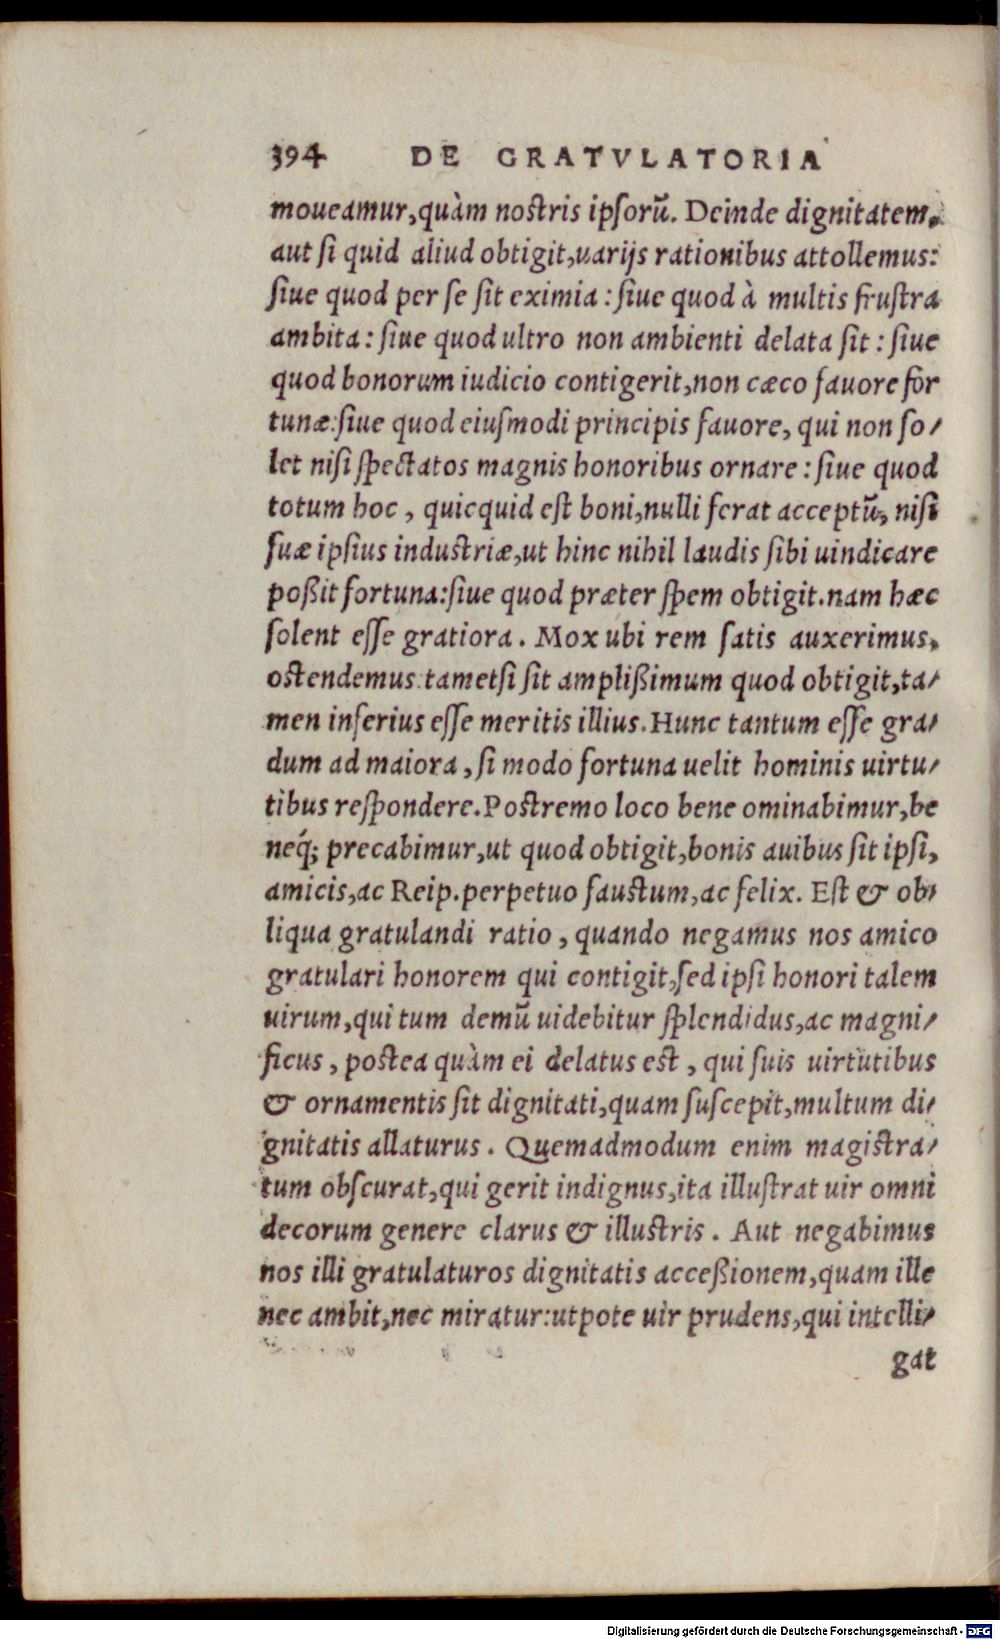 394 DE GRATVLATORIA
moueamur,quàm nostris ipsorũ. Deinde dignitatem,
aut si quid aliud obtigit,uarijs rationibus attollemus:
siue quod per se sit eximia : siue quod à multis frustra
ambita : siue quod ultro non ambienti delata sit : siue
quod bonorum iudicio contigerit,non cæco fauore for
tunæ:siue quod eiusmodi principis fauore, qui non so/
let nisi spectatos magnis honoribus ornare : siue quod
totum hoc , quicquid est boni,nulli ferat acceptũ, nisi
suæ ipsius industriæ,ut hinc nihil laudis sibi uindicare
poßit fortuna:siue quod præter spem obtigit.nam hæc
solent esse gratiora. Mox ubi rem satis auxerimus,
ostendemus tametsi sit amplißimum quod obtigit,ta/
men inferius esse meritis illius. Hunc tantum esse gra/
dum ad maiora , si modo fortuna uelit hominis uirtu/
tibus respondere. Postremo loco bene ominabimur,be
neq́; precabimur,ut quod obtigit,bonis auibus sit ipsi,
amicis,ac Reip.perpetuo faustum,ac felix. Est & ob/
liqua gratulandi ratio , quando negamus nos amico
gratulari honorem qui contigit,sed ipsi honori talem
uirum,qui tum demũ uidebitur splendidus,ac magni/
ficus , postea quàm ei delatus est , qui suis uirtutibus
& ornamentis sit dignitati,quam suscepit,multum di/
gnitatis allaturus . Quemadmodum enim magistra/
tum obscurat,qui gerit indignus,ita illustrat uir omni
decorum genere clarus & illustris . Aut negabimus
nos illi gratulaturos dignitatis acceßionem,quam ille
nec ambit,nec miratur:utpote uir prudens,qui intelli/
gat
Digitalisierung gefördert durch die Deutsche Forschungsgemeinschaft - DFG